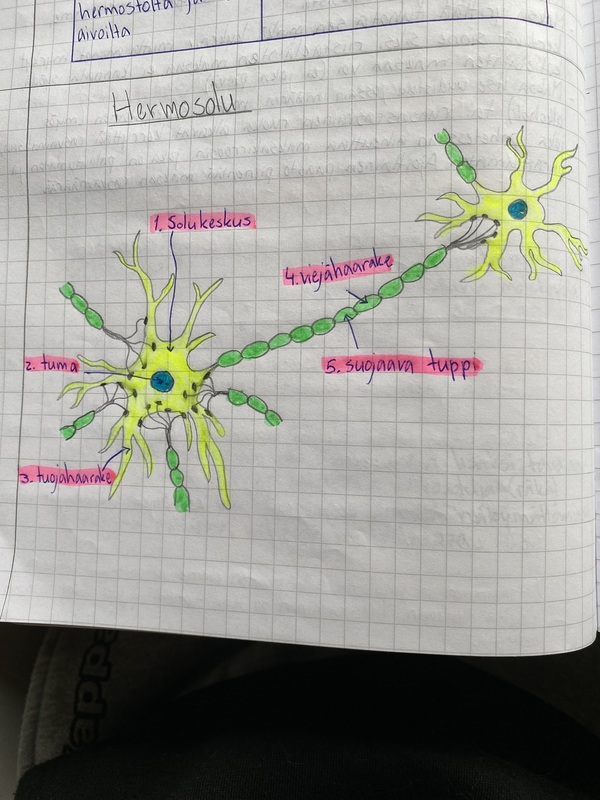 hermostolta ja
aivoilta
Hermosolu
1. Solukeskus
4. viejähaarake
2. tuma
5. suojaava tuppi
3. tuojahaarake